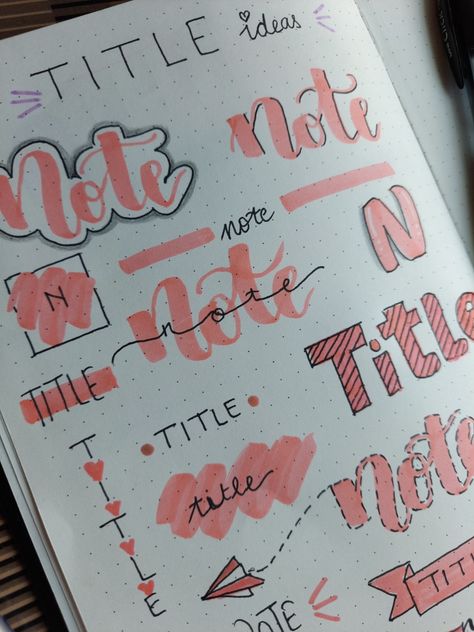 TITLE ideas
note note
note
N
N note
note
Title
TITLE
TITLE
TITLE
title
note
NOTE
TIT